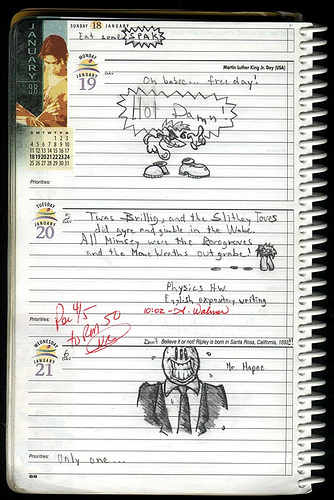 SUNDAY 18 JANUARY
Eat some SPAM
JANUARY 98
MONDAY
JANUARY
19
DAY
Martin Luther King Jr. Day (USA)
Oh babie... free day!
Hot Damn!
S M T W T F S
1 2 3
4 5 6 7 8 9 10
11 12 13 14 15 16 17
18 19 20 21 22 23 24
25 26 27 28 29 30 31
Priorities:
TUESDAY
JANUARY
20
2
Twas Brillig, and the Slithey Toves
did gyre and gimble in the Wabe.
All Mimsey were the Borogroves
and the Mome Wraths outgrabe!
Physics H.W.
English expository writing
10:02
Priorities:
WEDNESDAY
JANUARY
21
6
Believe it or not! Ripley is born in Santa Rosa, California, 1893!
Mr. Hapee
Priorities:
Only one...
88